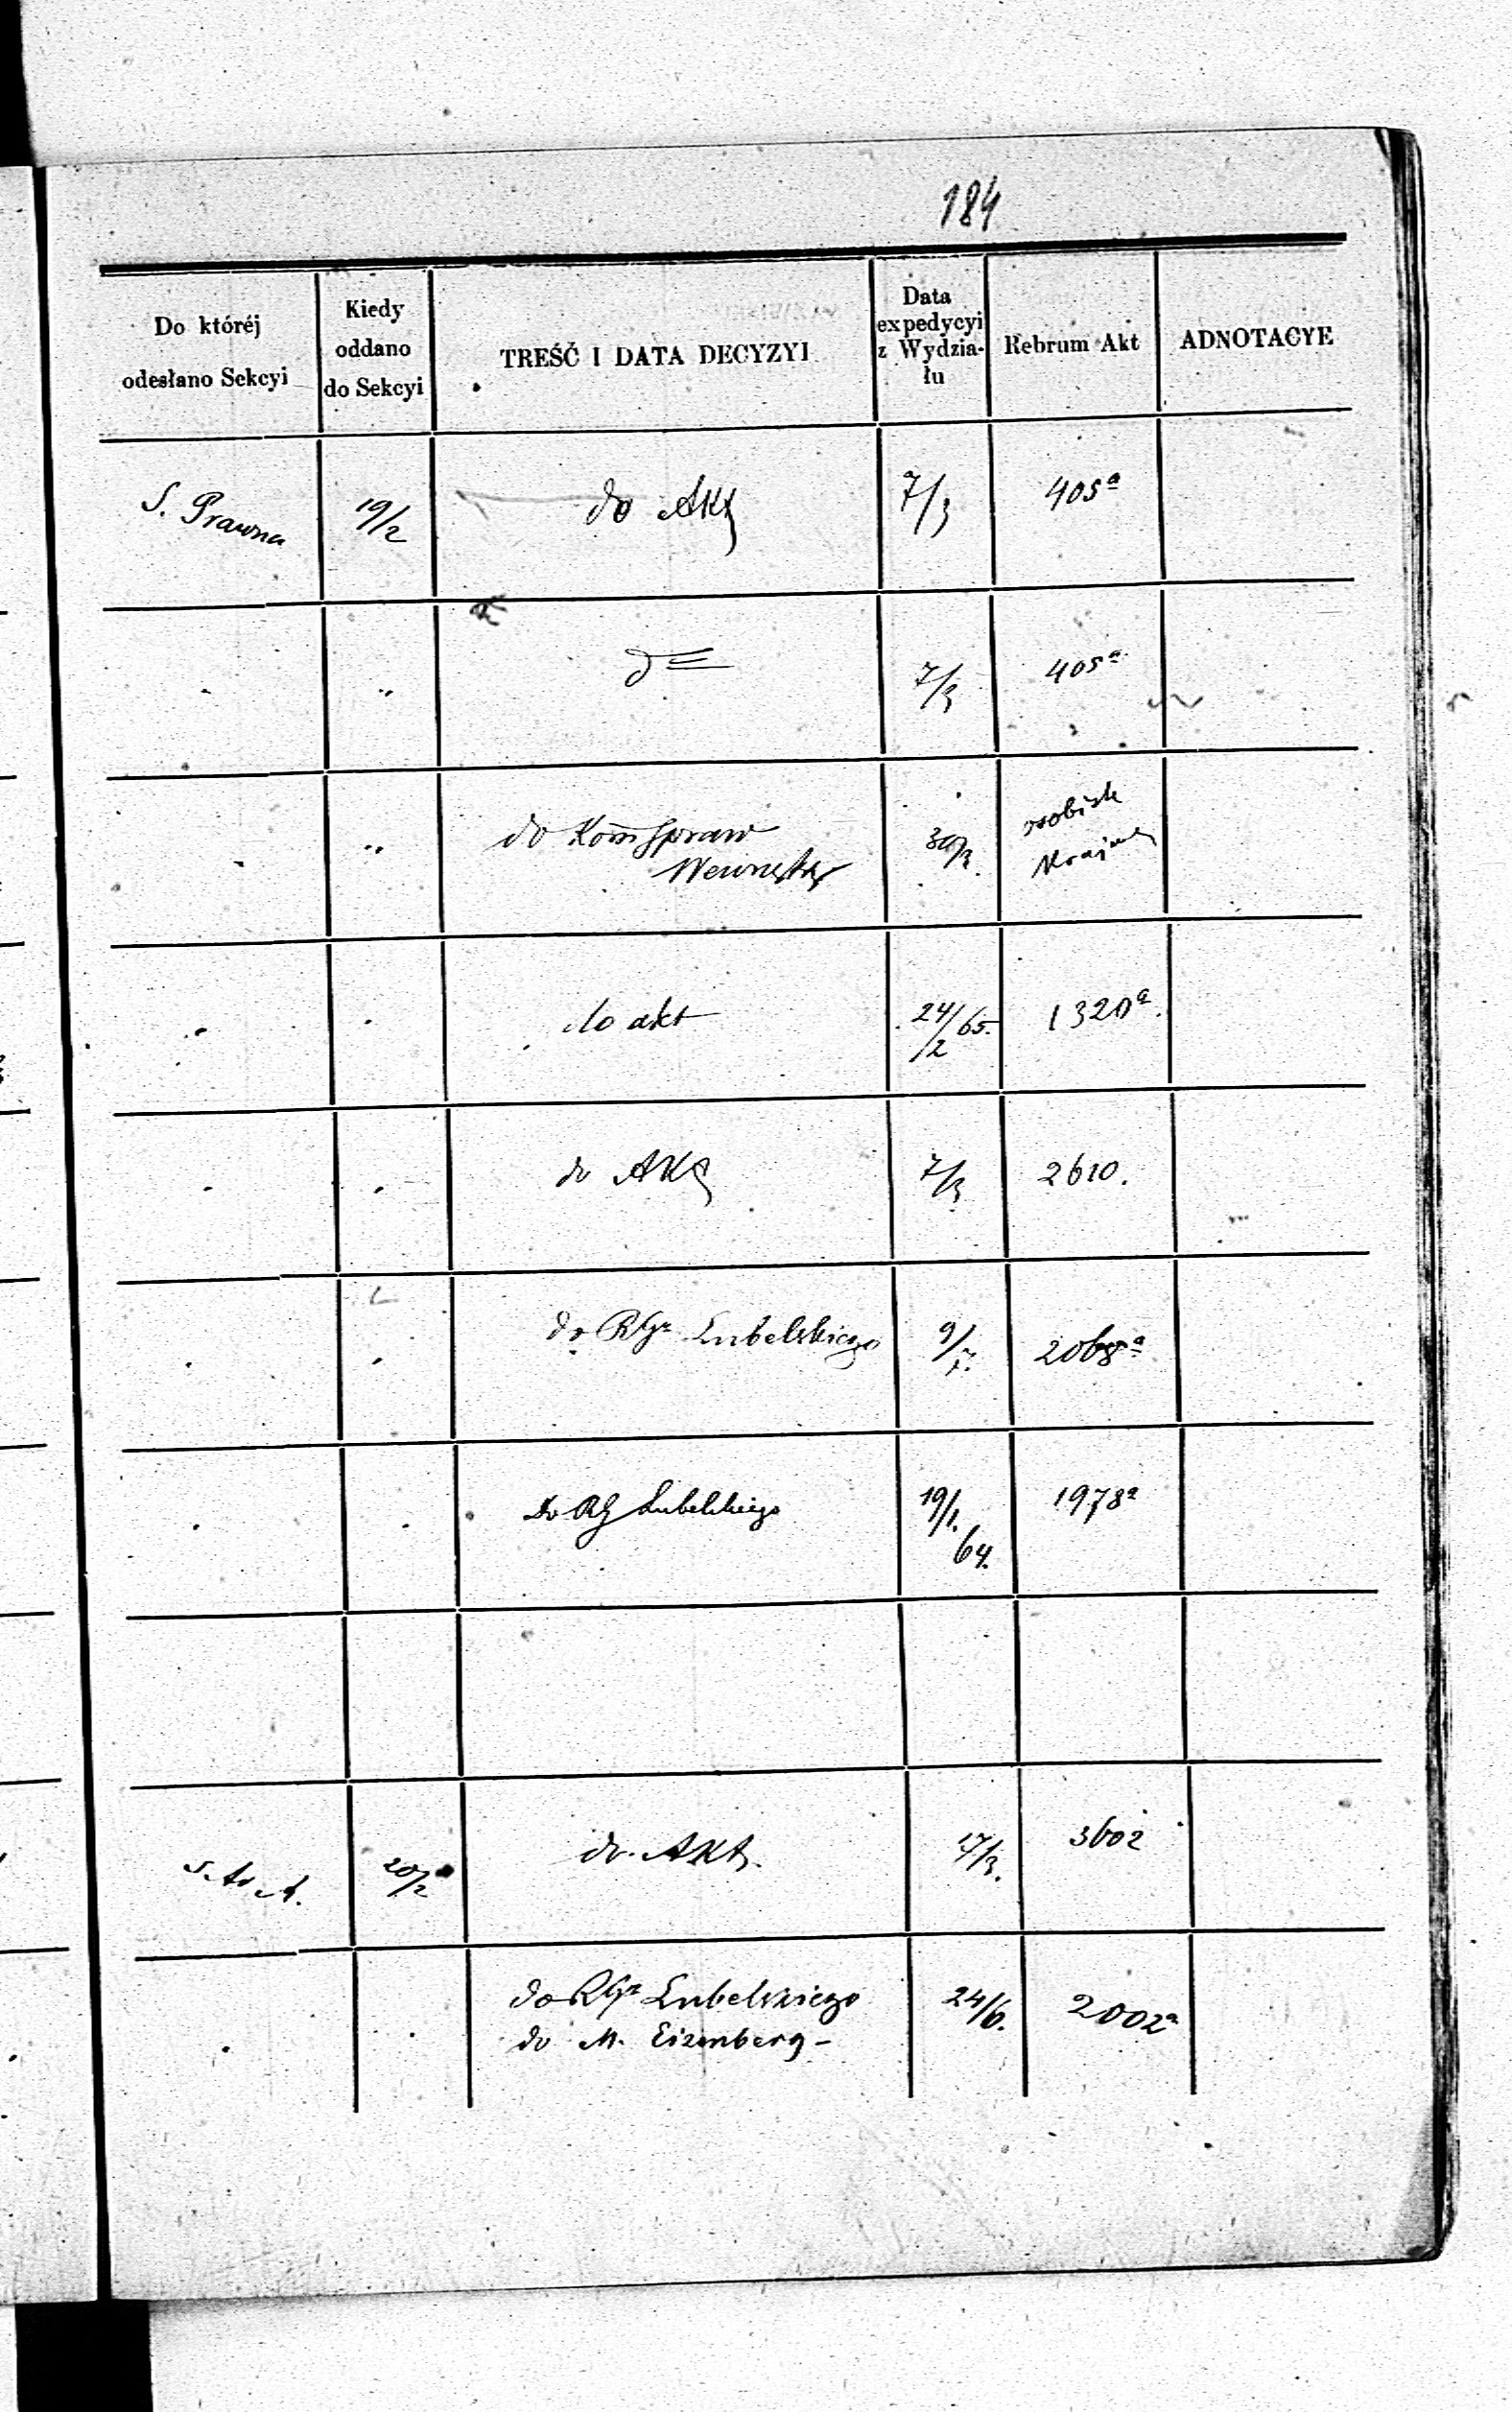 184
Do któréj odesłano Sekcyi
Kiedy oddano do Sekcyi
TREŚČ I DATA DECYZYI
Data expedycyi z Wydzia- łu
Rebrum Akt
ADNOTACYE
S. Prawna 19/2 do Akt 7/3 405a
" " d= 7/3 405a
" " do Kom Spraw 30/3 osobiste
Wewnętrz Krajowe
" " do akt 24/2 65. 1320a
" " do Akt 7/3 2610.
" " do RGr Lubelskiego 9/7. 2068a
" " Do RG Lubelskiego 19/1. 64. 1978a
20/2 do Akt. 17/3. 3602
" " do RGr Lubelskiego 24/6. 2002a
do M. Eizenberg -